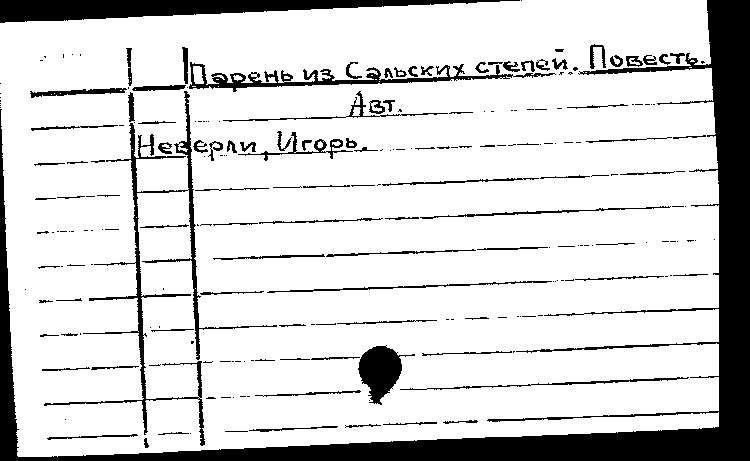 Парень из Сальских степей. Повесть.
Авт.
Неверли, Игорь.